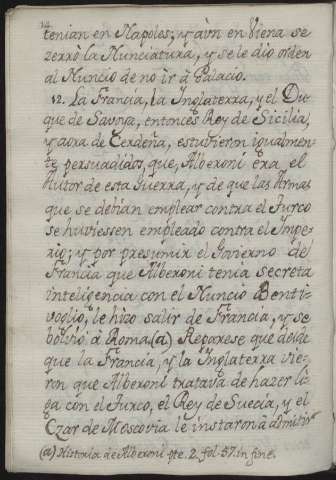 14
tenian en Napoles; y aùn en Viena se
zerrò la Nunciatura, y se le dio orden
al Nuncio de no ir à Palacio.
12. La Francia, la Inglaterra, y el Du=
que de Savoya, entonces Rey de Sicilia,
y aora de Cerdeña, estuvieron igualmen=
te persuadidos, que, Alberoni èra el
Autor de esta Guerra, y de que las Armas
que se debian emplear contra el Turco
se huviessen empleado contra el Impe=
rio; y por presumir el Govierno de
Francia que Alberoni tenia secreta
inteligencia con el Nuncio Benti=
voglio, le hizo salir de Francia, y se
bolviò à Roma(a) Reparese que desde
que la Francia, y la Inglaterra vie=
ron que Alberoni tratava de hazer li=
ga con el Turco, el Rey de Suecia, y el
Czar de Moscovia le instaron à admitir
(a) Historia de Alberoni pte. 2. fol. 57. in fine.